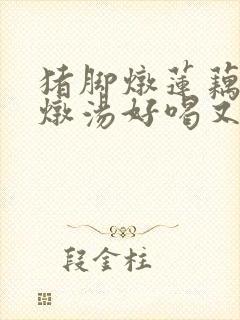 猪脚燉莲藕
燉汤好喝又
段金柱